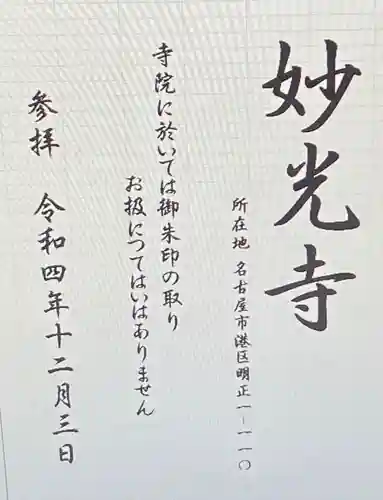 妙光寺
所在地 名古屋市港区明正一ー一一〇
寺院に於いては御朱印の取り
お扱につてはいはありません
参拝 令和四年十二月三日